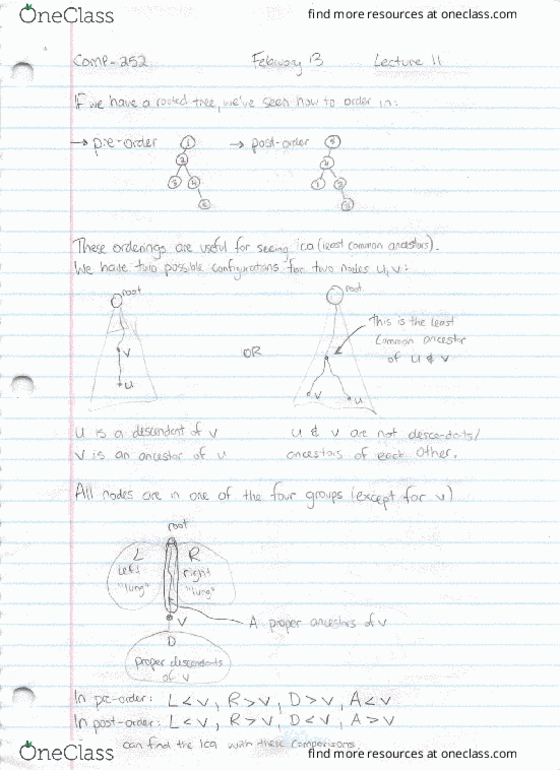 OneClass find more resources at oneclass.com
Comp-252 February 13 Lecture 11
If we have a rooted tree, we've seen how to order in:
→ pre-order → post-order
1 5
2 4
3 4 1
5
These orderings are useful for seeing lca (least common ancestors).
We have two possible configurations for two nodes u,v:
root root
This is the least
common ancestor
of u & v
OR
v
u
v u
u is a descendent of v u & v are not descendants/
v is an ancestor of u ancestors of each other.
All nodes are in one of the four groups (except for v)
root
L R
left right
"lung" "lung"
v A proper ancestors of v
D
proper descendants
of v
In pre-order: L<v, R>v, D>v, A<v
In post-order: L<v, R>v, D<v, A>v
can find the lca with these comparisons
OneClass find more resources at oneclass.com